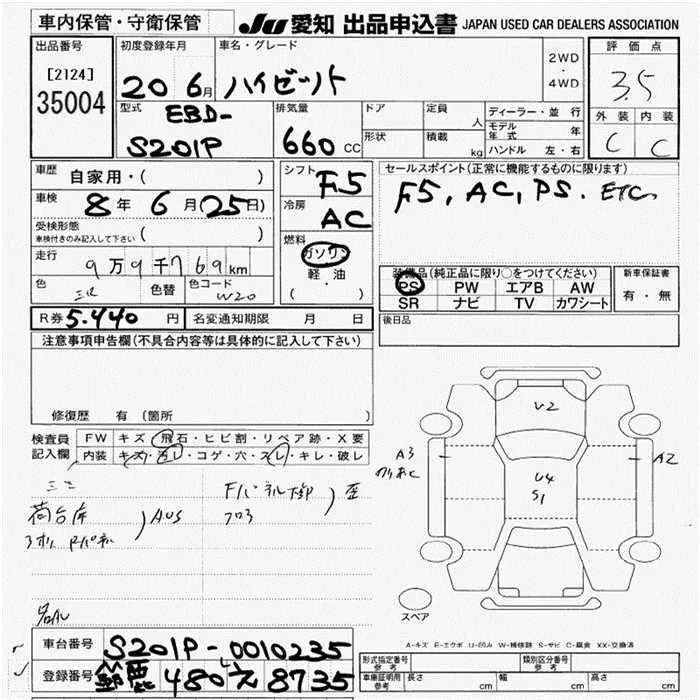 車内保管・守衛保管
JU 愛知 出品申込書 JAPAN USED CAR DEALERS ASSOCIATION
出品番号
[2124]
35004
初度登録年月
20 6月
車名・グレード
ハイゼット
2WD
・
4WD
評価点
3.5
外装 内装
C C
型式
EBD-
S201P
排気量
660 CC
ドア
形状
定員 人
積載 kg
ディーラー・並行
モデル年式 年
ハンドル 左・右
車歴
自家用・( )
車検
8年 6月(25日)
受検形態
車検付きのみ記入して下さい ( )
走行
9万9千769km
色 色替 色コード
W20
シフト
F5
冷房
AC
燃料
ガソリン
軽・油
( )
セールスポイント(正常に機能するものに限ります)
F5, AC, PS. ETC
装備品(純正品に限り○をつけてください)
PS PW エアB AW
SR ナビ TV カワシート
新車保証書
有・無
後日品
R券 5.440 円
名変通知期限 月 日
注意事項申告欄(不具合内容等は具体的に記入して下さい)
修復歴 有(箇所 )
検査員
記入欄
FW キズ・飛石・ヒビ割・リペア跡・X要
内装 キズ・汚レ・コゲ・穴・スレ・キレ・破レ
V2
A3
A2
U4
S1
スペア
A-キズ E-エクボ U-凹み W-補修跡 S-サビ C-腐食 XX-交換済
車台番号
S201P-0010235
登録番号
480 え 8735
形式指定番号
参考
類別区分番号
参考
車庫証明用
参考
長さ cm
幅 cm
高さ cm